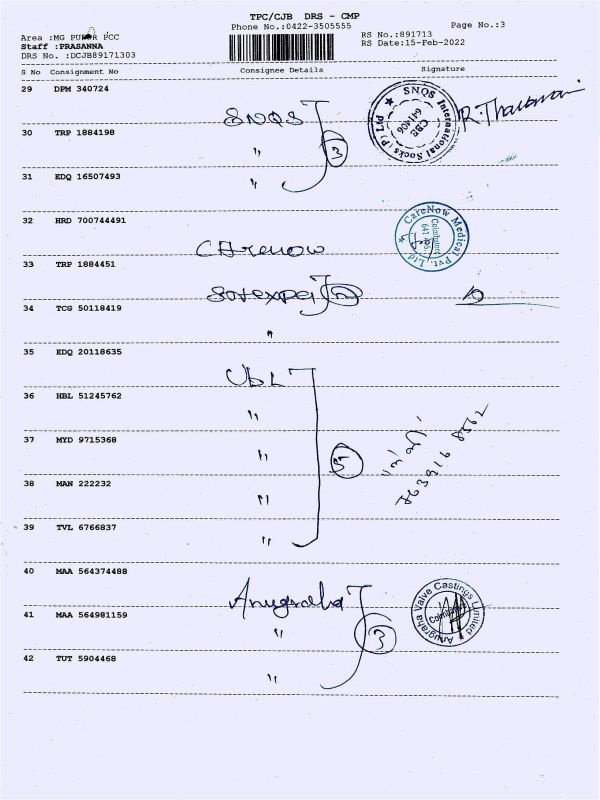 TPC/CJB DRS - CMP
Phone No.:0422-3505555
Page No.:3
Area :MG PUDUR PCC
RS No.:891713
Staff :PRASANNA
RS Date:15-Feb-2022
DRS No. :DCJB89171303
S No Consignment No Consignee Details Signature
29 DPM 340724 SNQS
SNQS International Socks (P) Ltd ★ CBE 641406
R. Tharani
30 TRP 1884198 " 3
31 EDQ 16507493 "
32 HRD 700744491 CArenow
CareNow Medical Pvt. Ltd ★ Coimbatore 641
33 TRP 1884451
34 TCG 50118419 "
35 EDQ 20118635 UbL
36 HBL 51245762 "
37 MYD 9715368 " 5
863916 8562
38 MAN 222232 "
39 TVL 6766837 "
40 MAA 564374488 Anugraha
Anugraha Valve Castings Limited ★ Coimbatore
41 MAA 564981159 " 3
42 TUT 5904468 "